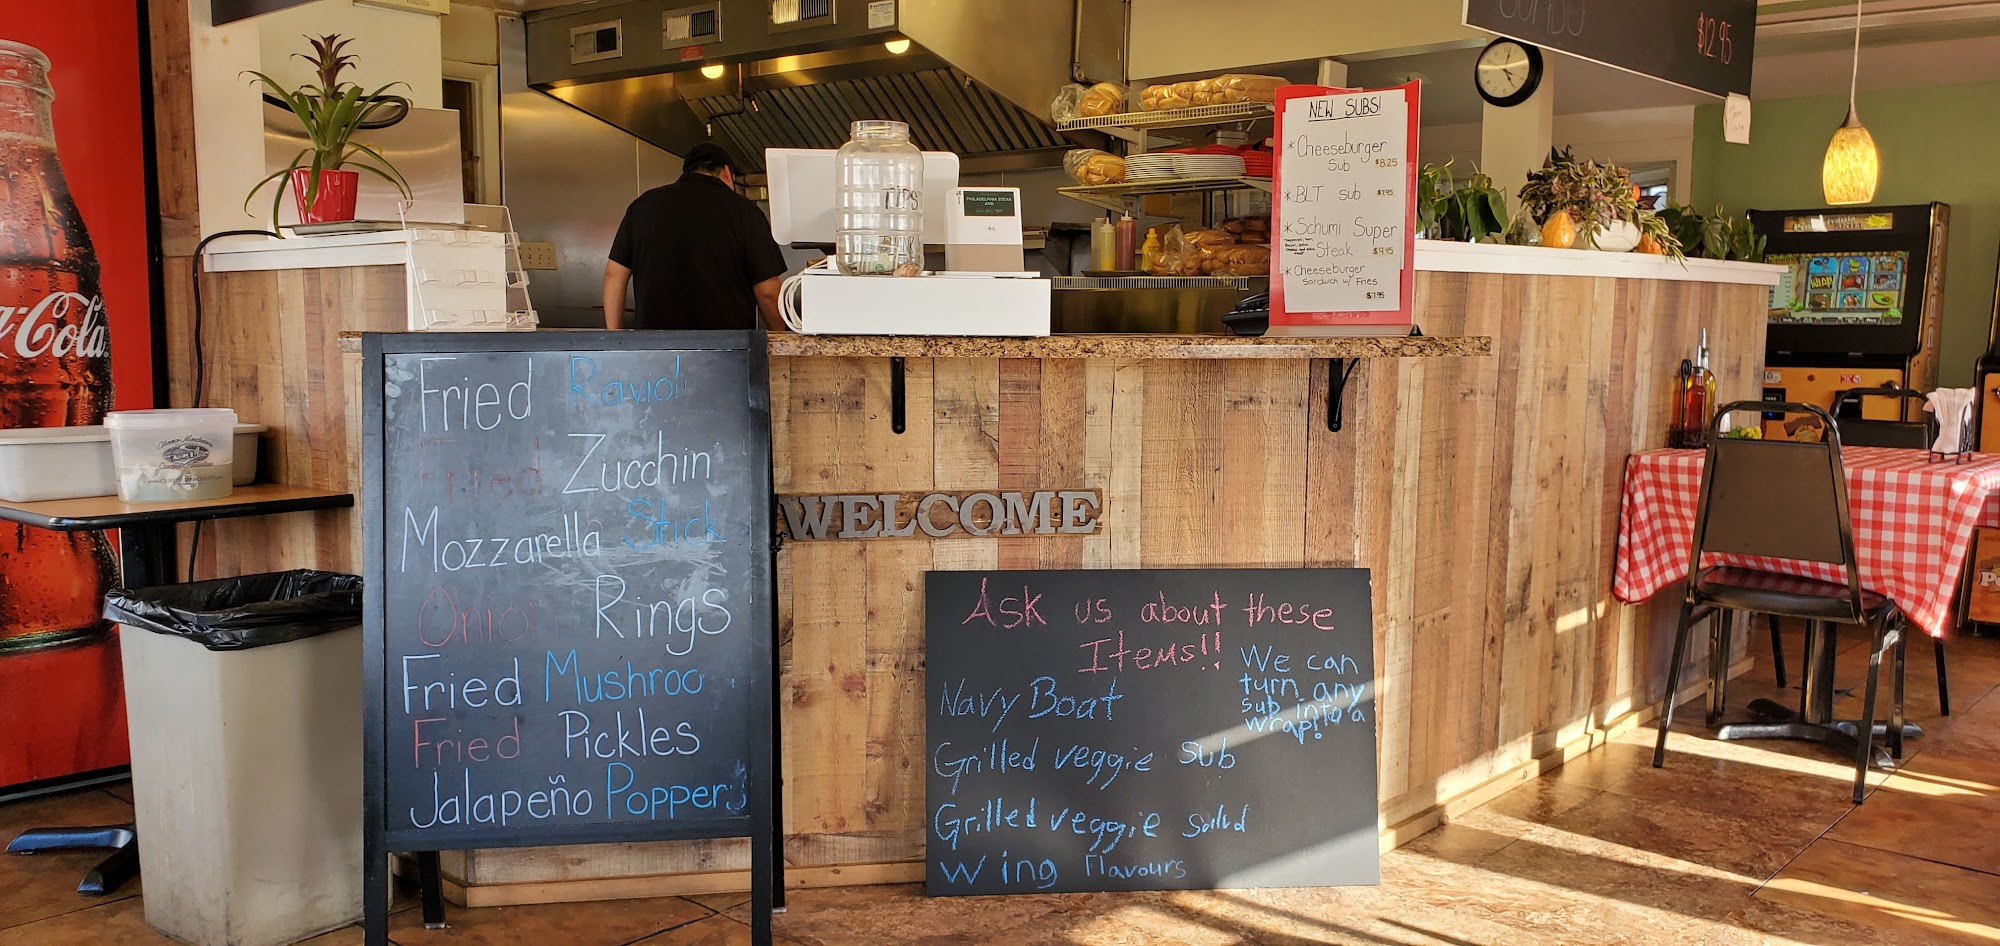 $12.95
NEW SUBS!
* Cheeseburger
Sub $8.25
* BLT sub $7.95
* Schumi Super
Steak $9.95
* Cheeseburger
Sandwich w/ Fries
$7.95
TIPS
PHILADELPHIA STEAK
AND
Coca-Cola
Fried Ravioli
Fried Zucchin
Mozzarella Stick
Onion Rings
Fried Mushroo
Fried Pickles
Jalapeño Poppers
WELCOME
Ask us about these
Items!!
We can
turn any
sub into a
wrap!
Navy Boat
Grilled veggie sub
Grilled veggie salad
Wing flavours